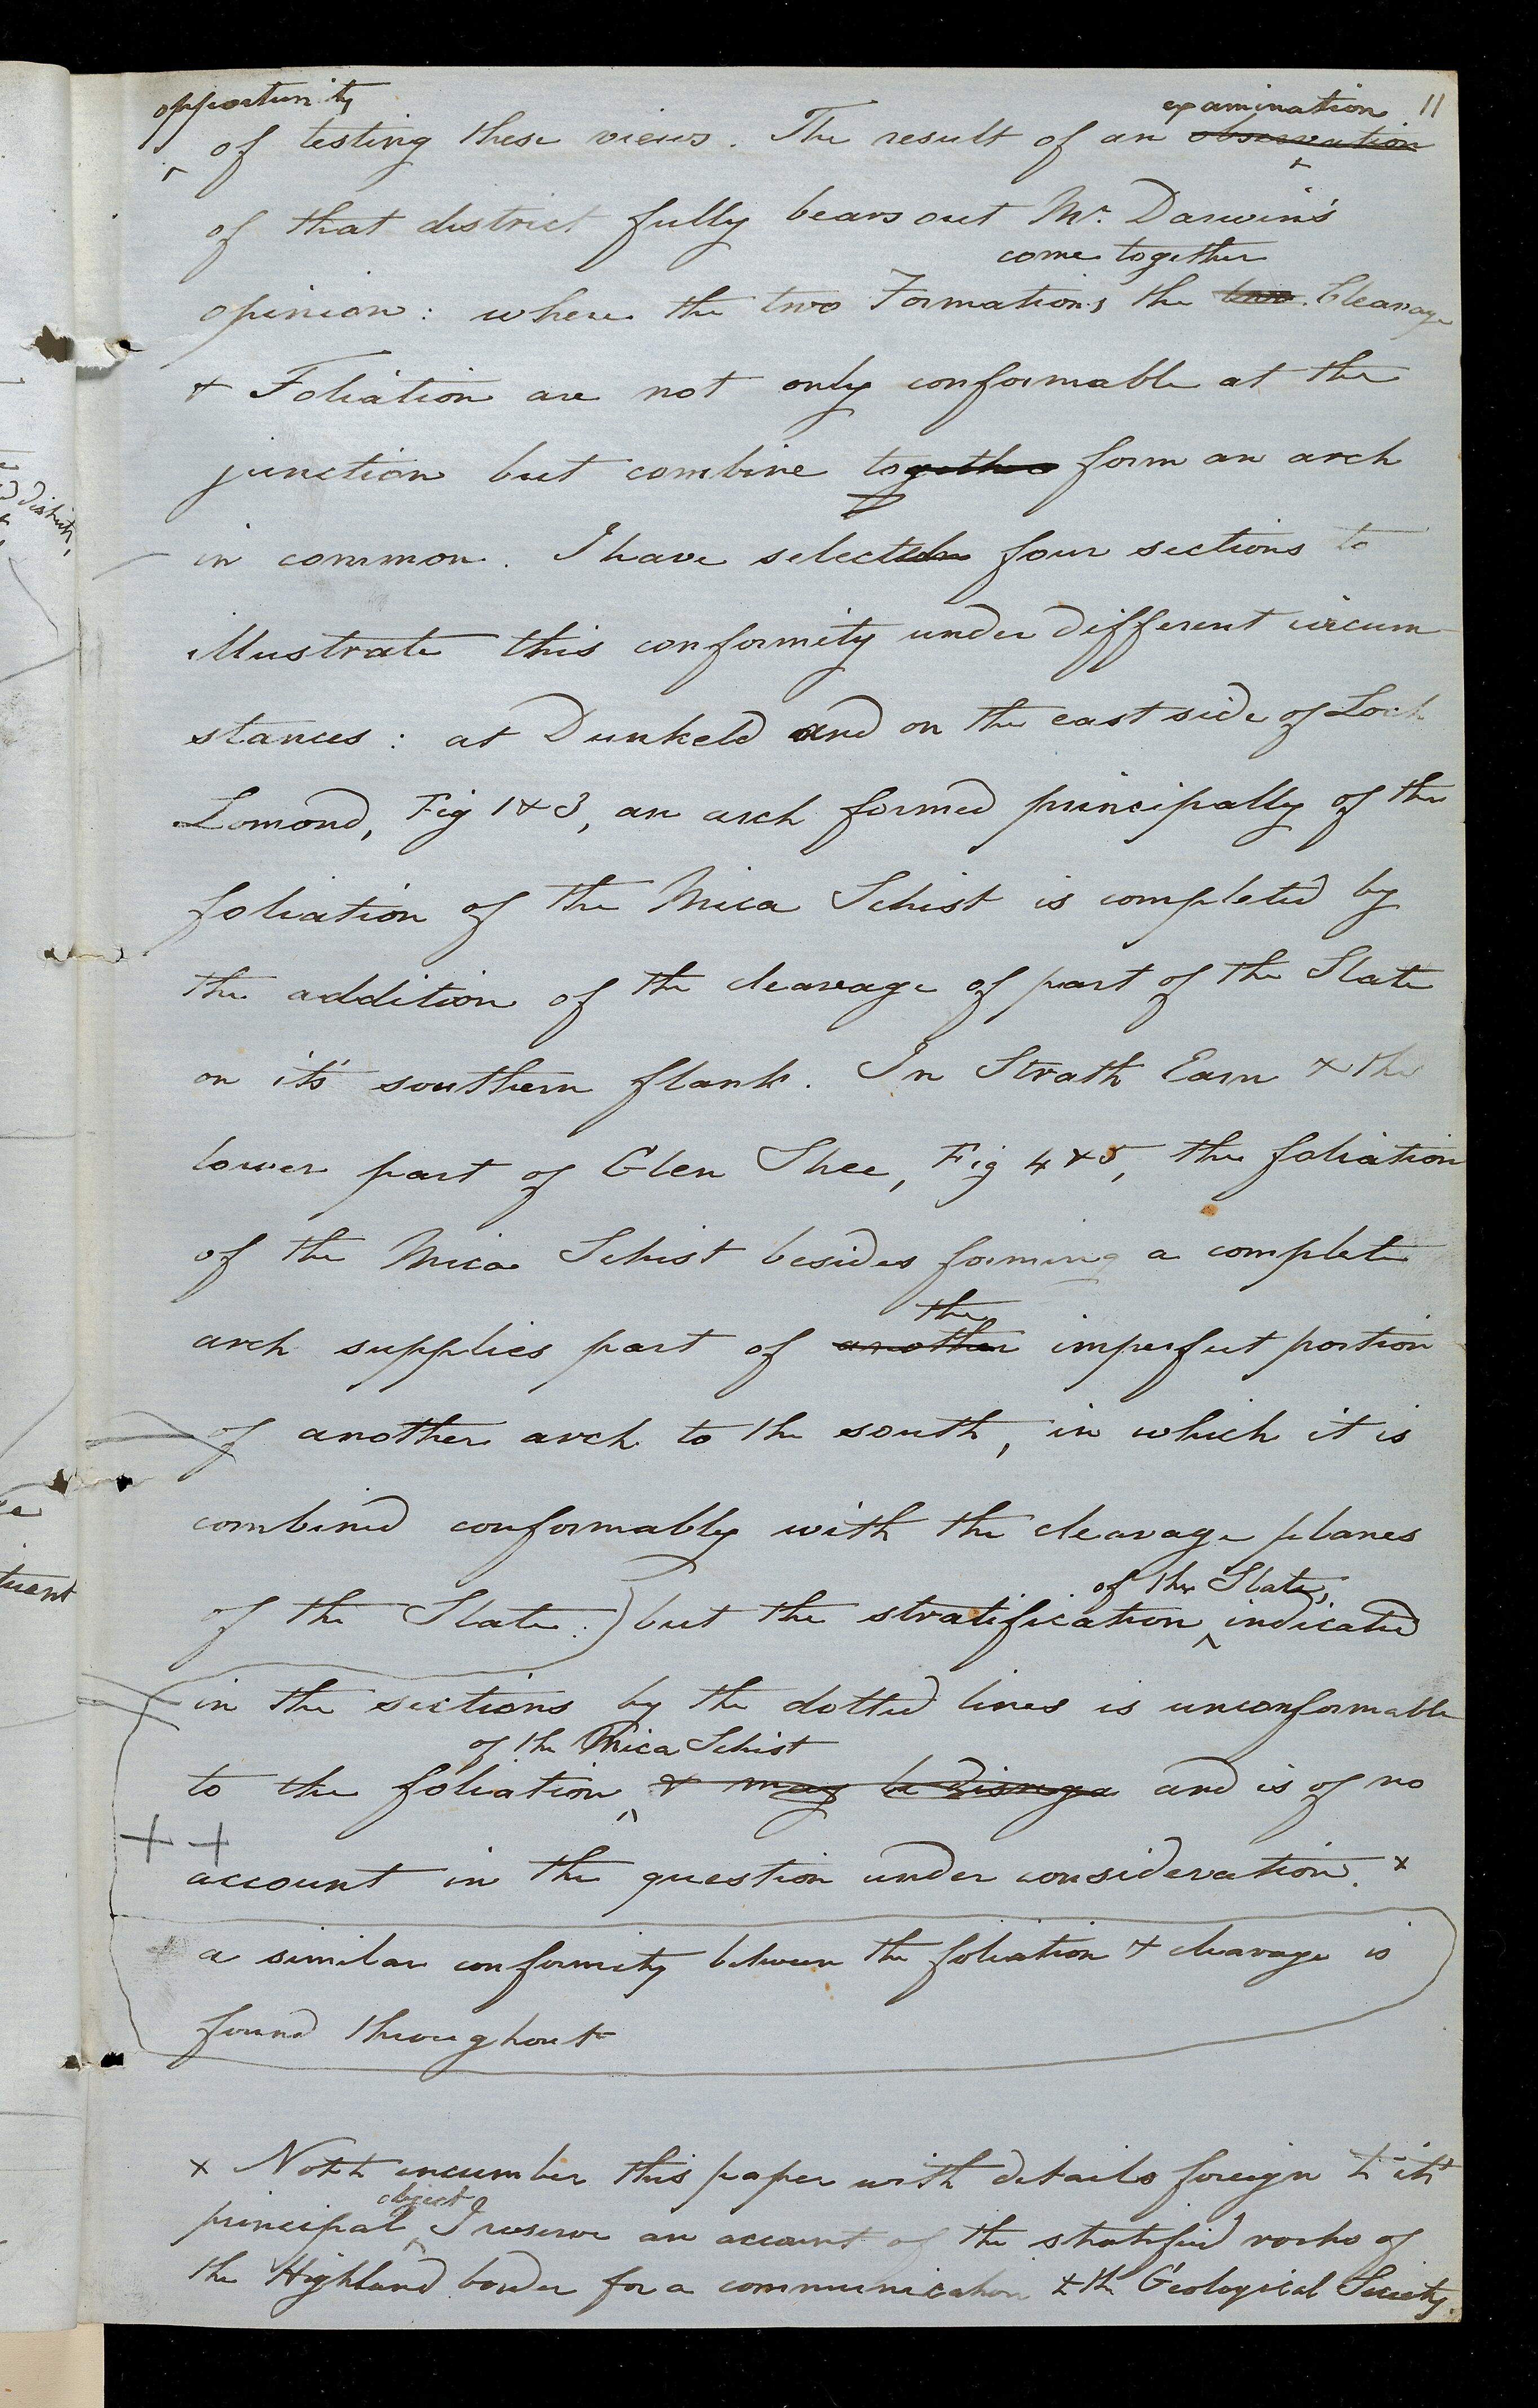 11
opportunity examination
of testing these views. The result of an observation
of that district fully bears out Mr. Darwin's
come together
opinion: where the two Formations the two Cleavage
& Foliation are not only conformable at the
junction but combine together form an arch
in common. I have selected four sections to
illustrate this conformity under different circum
stances: at Dunkeld and on the east side of Loch
Lomond, Fig 1 & 3, an arch formed principally of the
foliation of the Mica Schist is completed by
the addition of the cleavage of part of the Slate
on it's southern flank. In Strath Earn & the
lower part of Glen Shee, Fig 4 & 5, the foliation
of the Mica Schist besides forming a complete
the
arch supplies part of another imperfect portion
of another arch to the south, in which it is
combined conformably with the cleavage planes
of the Slate,
of the Slate:) but the stratification indicated
in the sections by the dotted lines is unconformable
of the Mica Schist
to the foliation & may be and is of no
++
account in the question under consideration. x
a similar conformity between the foliation & cleavage is
found throughout
x Not to incumber this paper with details foreign to it's
object
principal I reserve an account of the stratified rocks of
the Highland border for a communication to the Geological Society.
District,
tuent